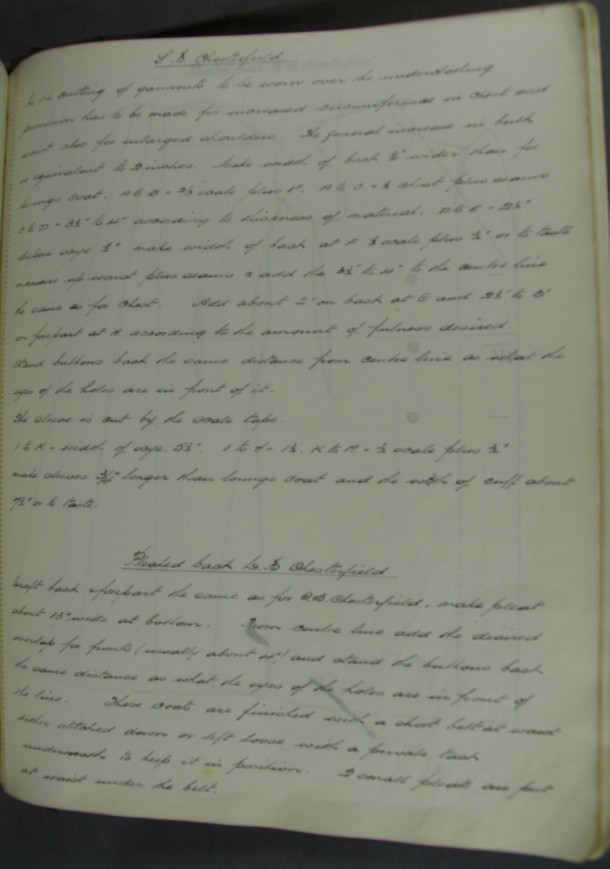 S B Chesterfield
In in cutting of garments to be worn over the underclothing
provision has to be made for increased circumference in chest and
waist also for enlarged shoulders. The general increase in bulk
is equivalent to 2 inches. Make width of back wider than for
lounge coat. A to B = 2/3 scale plus 1". A to C = chest plus seams
C to D = 3½" to 4" according to thickness of material. D to E = 2½"
scye ½" make width of back at scale plus ½" or to taste
measure up waist plus seams & add the 3½" to 4" to the centre line
the same as for chest. Add about 2" on back at G and 2½" to 3"
on forpart at H according to the amount of fulness desired.
Stand buttons back the same distance from centre line as what the
eyes of the holes are in front of it.
The sleeve is cut by the scale tape.
1 to K = width of scye 5½". K to scale plus ½"
make sleeves longer than lounge coat and the width of cuff about
7½" or to taste.
Pleated back D.B Chesterfield
Draft back forpart the same as for S.B Chesterfield, make pleat
about 13" wide at bottom. From centre line add the desired
overlap for fronts (usually about 4") and stand the buttons back
the same distance as what the eyes of the holes are in front of
the line. These coats are finished with a short belt at waist
either stitched down or left loose with a private tack
underneath to keep it in position. 2 small pleats are put
at waist under the belt.